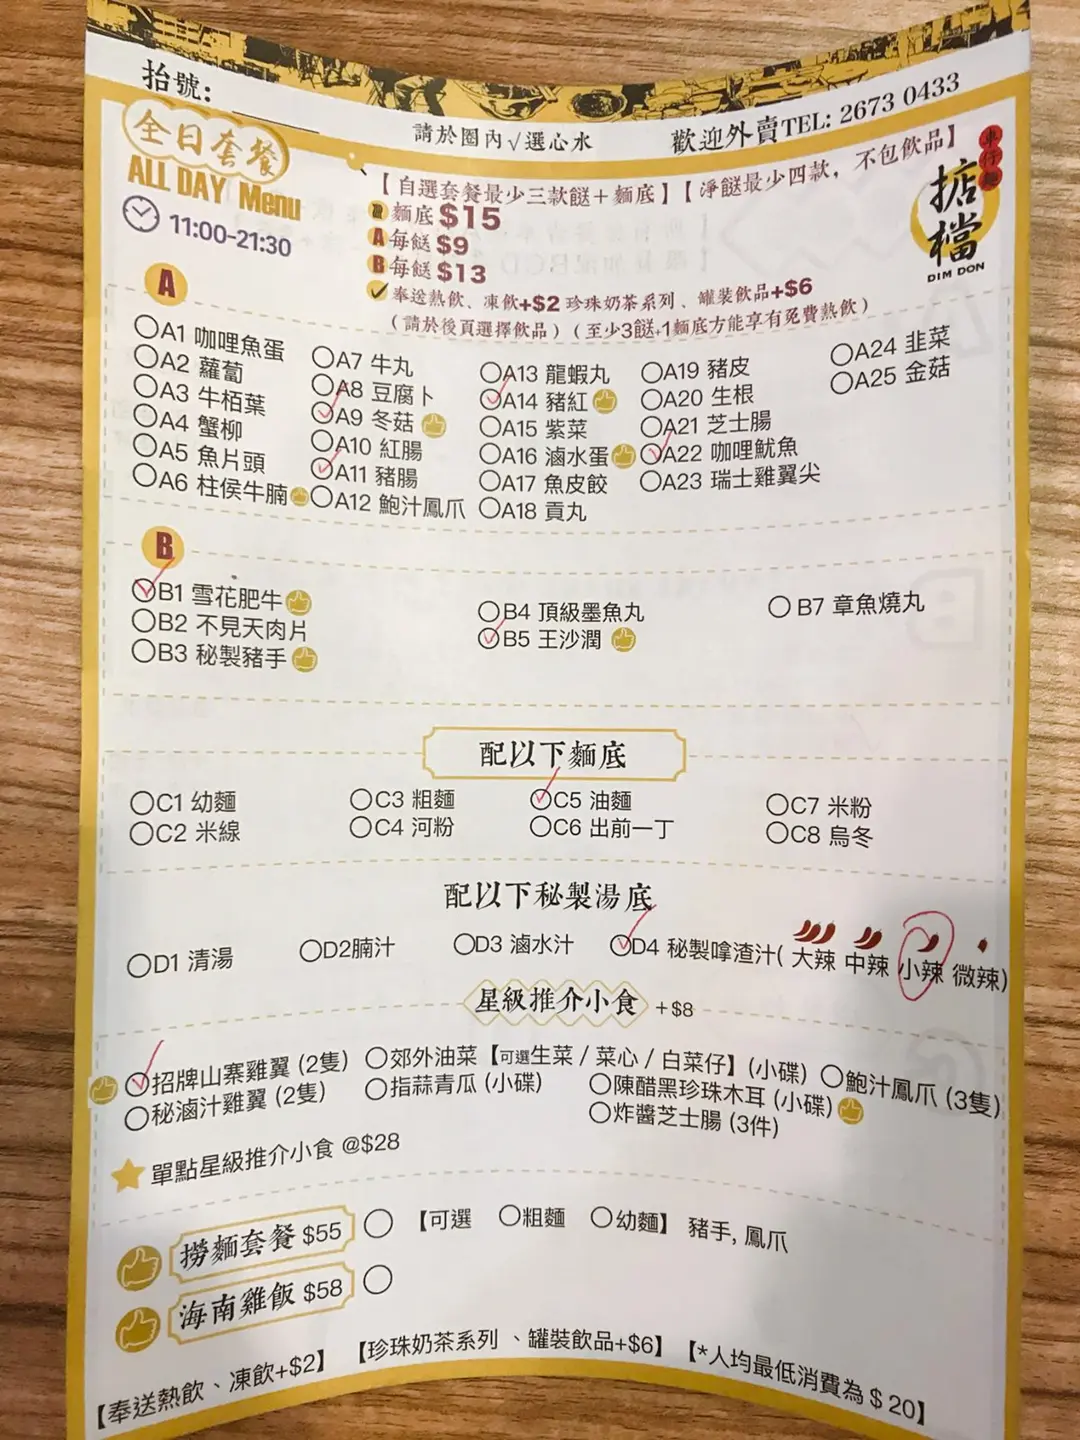 抬號:
請於圈內√選心水
歡迎外賣TEL: 2673 0433
全日套餐
ALL DAY Menu
11:00-21:30
【自選套餐最少三款餸＋麵底】【淨餸最少四款，不包飲品】
麵底$15
A 每餸$9
B 每餸$13
奉送熱飲、凍飲+$2 珍珠奶茶系列、罐裝飲品+$6
(請於後頁選擇飲品) (至少3餸+1麵底方能享有免費熱飲)
車仔麵
掂檔
DIM DON
A
A1 咖哩魚蛋
A2 蘿蔔
A3 牛栢葉
A4 蟹柳
A5 魚片頭
A6 柱侯牛腩
A7 牛丸
A8 豆腐卜
A9 冬菇
A10 紅腸
A11 豬腸
A12 鮑汁鳳爪
A13 龍蝦丸
A14 豬紅
A15 紫菜
A16 滷水蛋
A17 魚皮餃
A18 貢丸
A19 豬皮
A20 生根
A21 芝士腸
A22 咖哩魷魚
A23 瑞士雞翼尖
A24 韭菜
A25 金菇
B
B1 雪花肥牛
B2 不見天肉片
B3 秘製豬手
B4 頂級墨魚丸
B5 王沙潤
B7 章魚燒丸
配以下麵底
C1 幼麵
C2 米線
C3 粗麵
C4 河粉
C5 油麵
C6 出前一丁
C7 米粉
C8 烏冬
配以下秘製湯底
D1 清湯
D2腩汁
D3 滷水汁
D4 秘製嗱渣汁( 大辣 中辣 小辣 微辣)
星級推介小食 +$8
招牌山寨雞翼 (2隻)
秘滷汁雞翼 (2隻)
郊外油菜【可選生菜 / 菜心 / 白菜仔】(小碟)
指蒜青瓜 (小碟)
陳醋黑珍珠木耳 (小碟)
炸醬芝士腸 (3件)
鮑汁鳳爪 (3隻)
單點星級推介小食 @$28
撈麵套餐 $55 【可選 粗麵 幼麵】 豬手, 鳳爪
海南雞飯 $58
【奉送熱飲、凍飲+$2】 【珍珠奶茶系列 、罐裝飲品+$6】 【*人均最低消費為 $ 20】